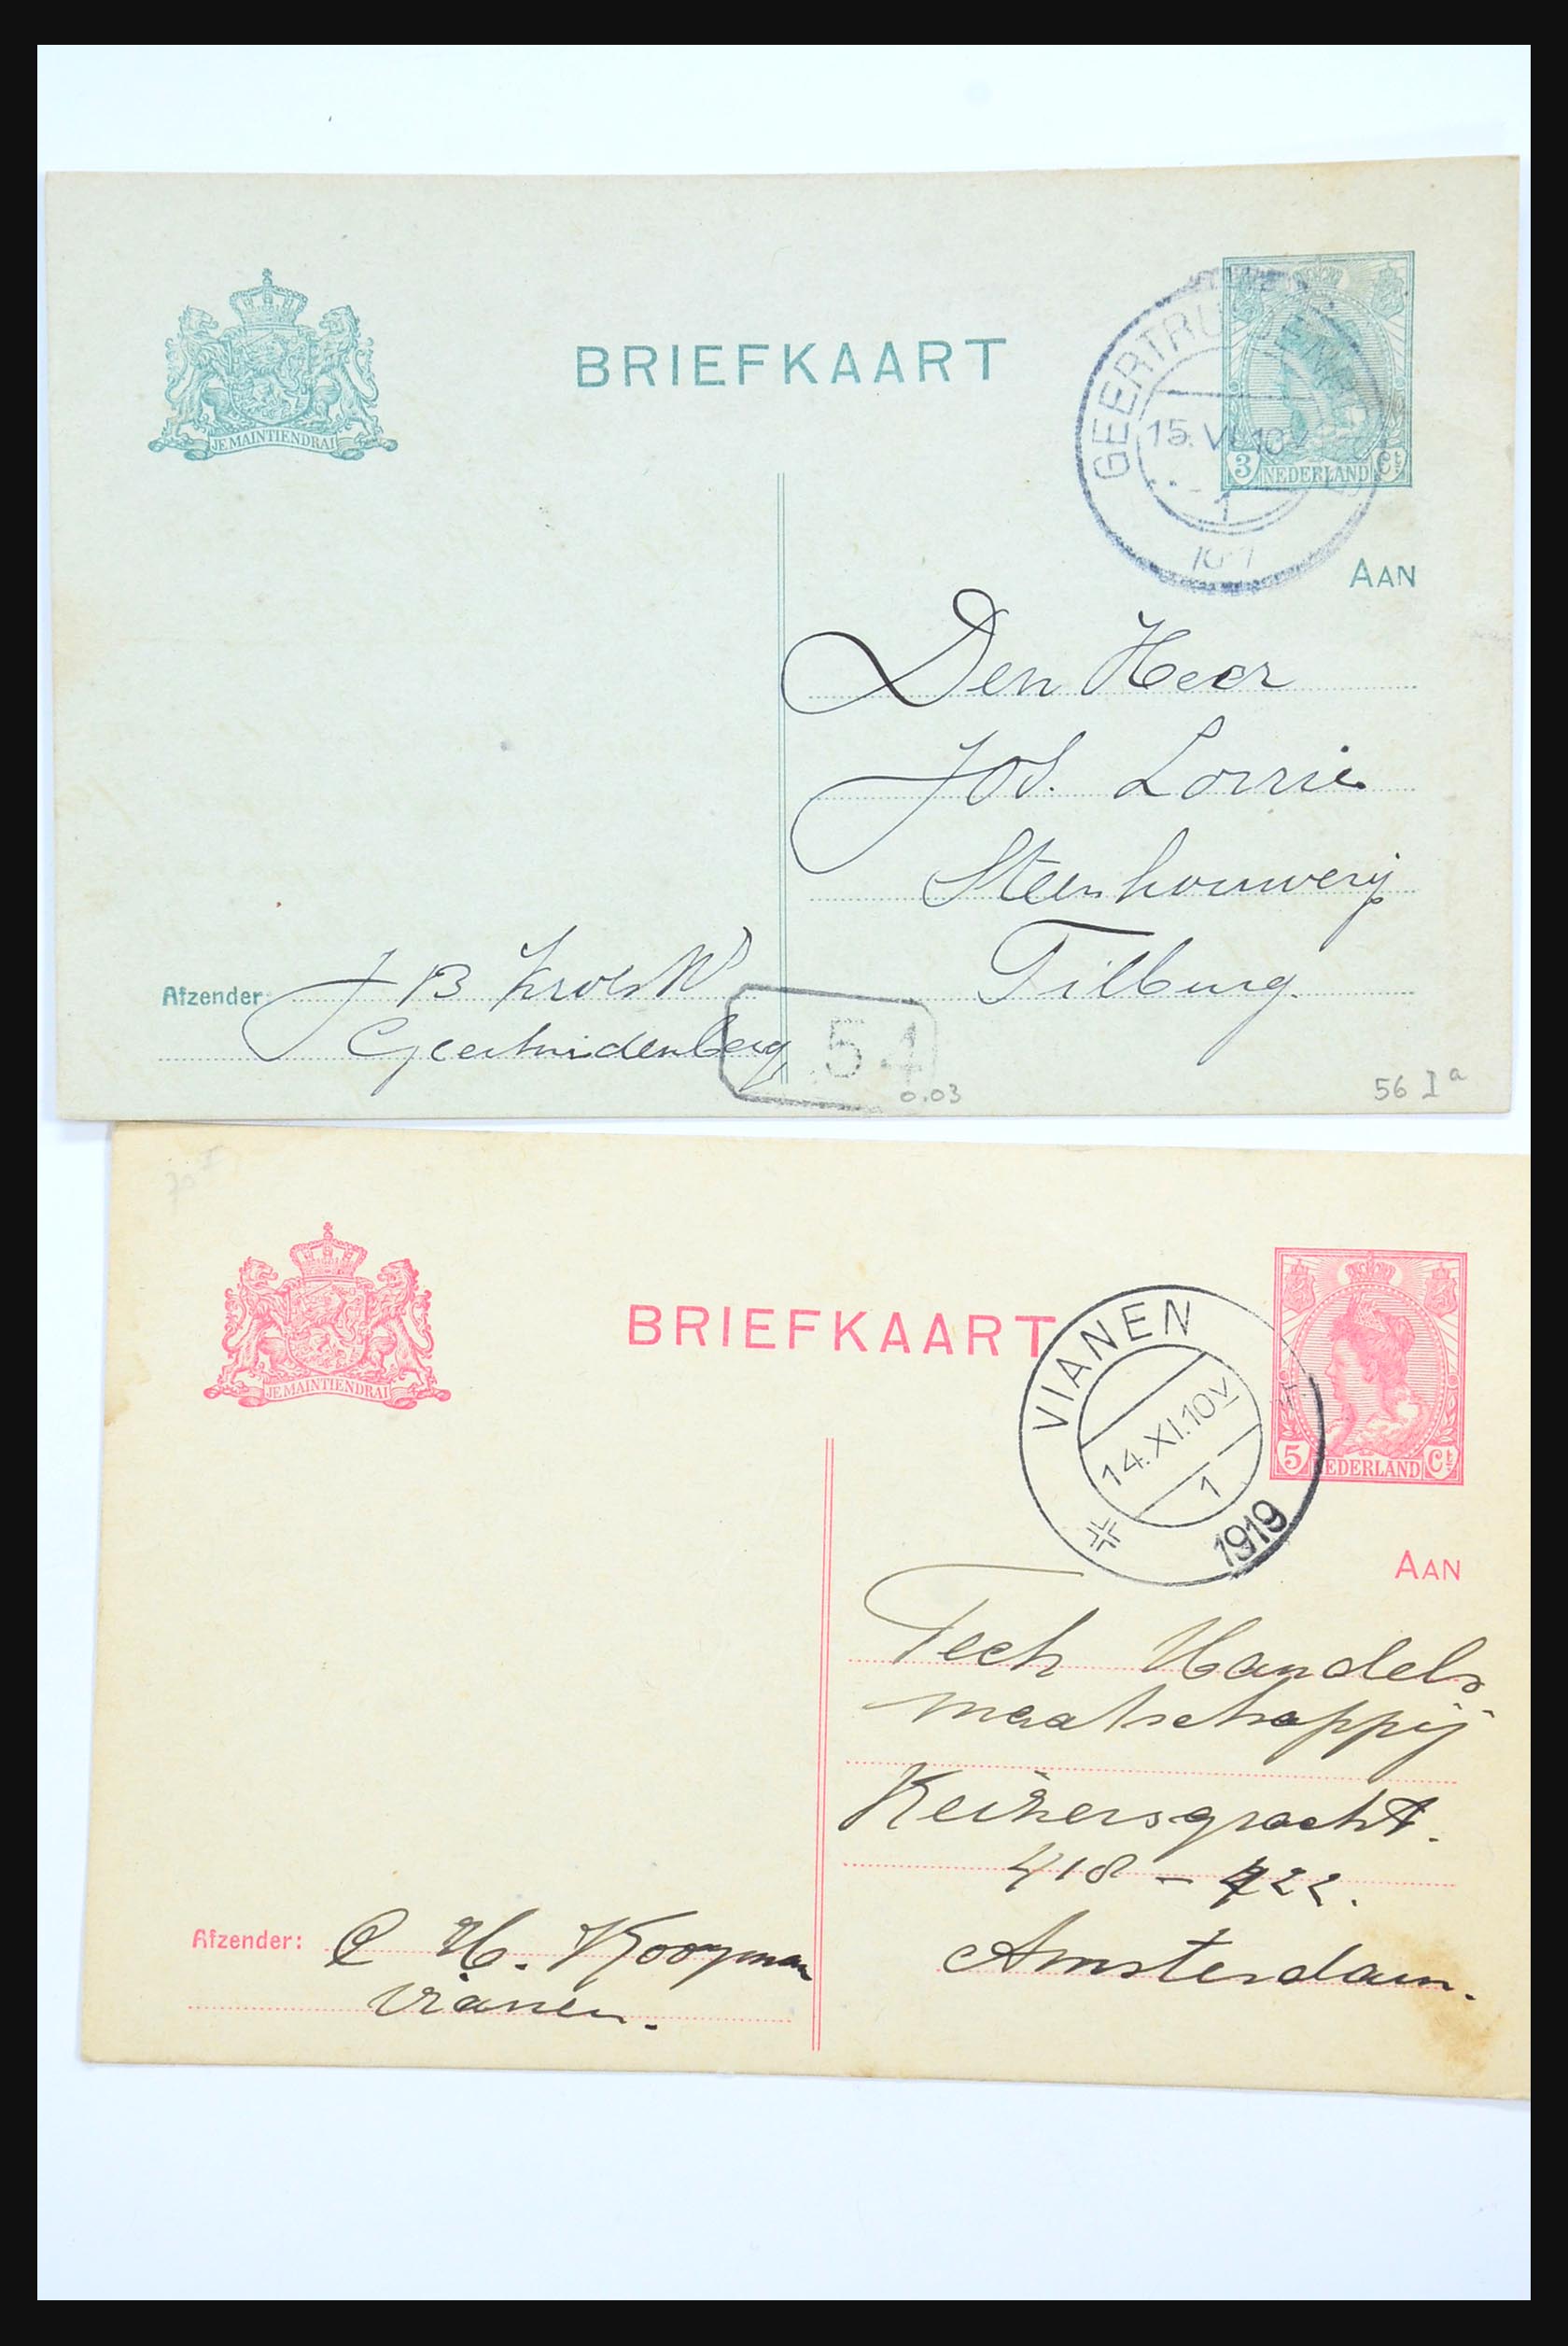 BRIEFKAART
JE MAINTIENDRAI
15.VI.10V
1
3 NEDERLAND Ct
AAN
Den Heer
Jos. Lorrie
Steenhouwerij
Tilburg.
Afzender:
J B
Geertruidenberg
54
0.03
56 Ia
70 I
BRIEFKAART
JE MAINTIENDRAI
VIANEN
14.XI.10V
1
1919
5 NEDERLAND Ct
AAN
Tech Handels
maatschappij
Keizersgracht.
418 - 422.
Amsterdam.
Afzender: C H. Kooyman
Vianen.